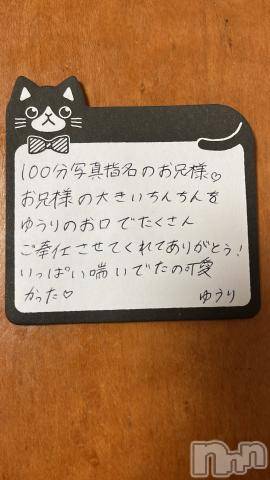 100分写真指名のお兄様♡
お兄様の大きいちんちんを
ゆうりのお口でたくさん
ご奉仕させてくれてありがとう!
いっぱい喘いでたの可愛
かった♡
ゆうり